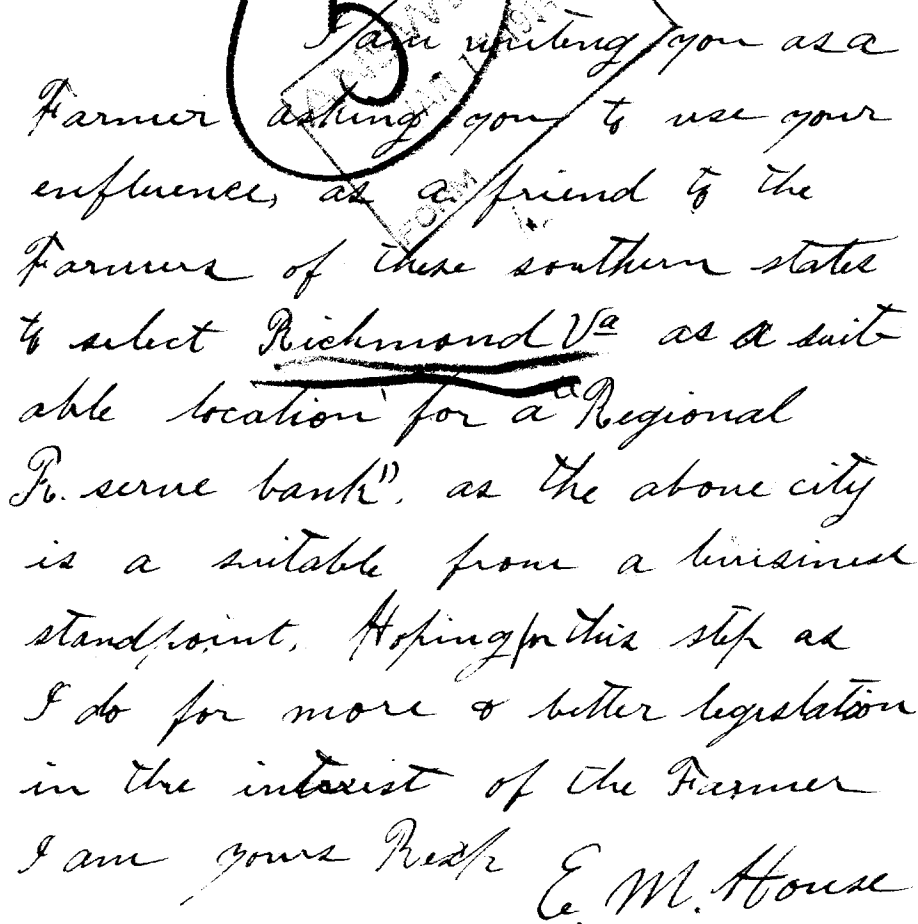 I am writing you as a
Farmer asking you to use your
enfluence, as a friend to the
Farmers of these southern states
to select Richmond Va as a suit-
able location for a "Regional
R. serve bank". as the above city
is a suitable from a buisiness
standpoint. Hoping for this step as
I do for more & better legislation
in the interist of the Farmer
I am yours Resp
E. M. House
FORM